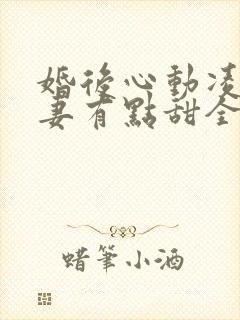 婚後心動凌
妻有點甜全
蜡筆小酒